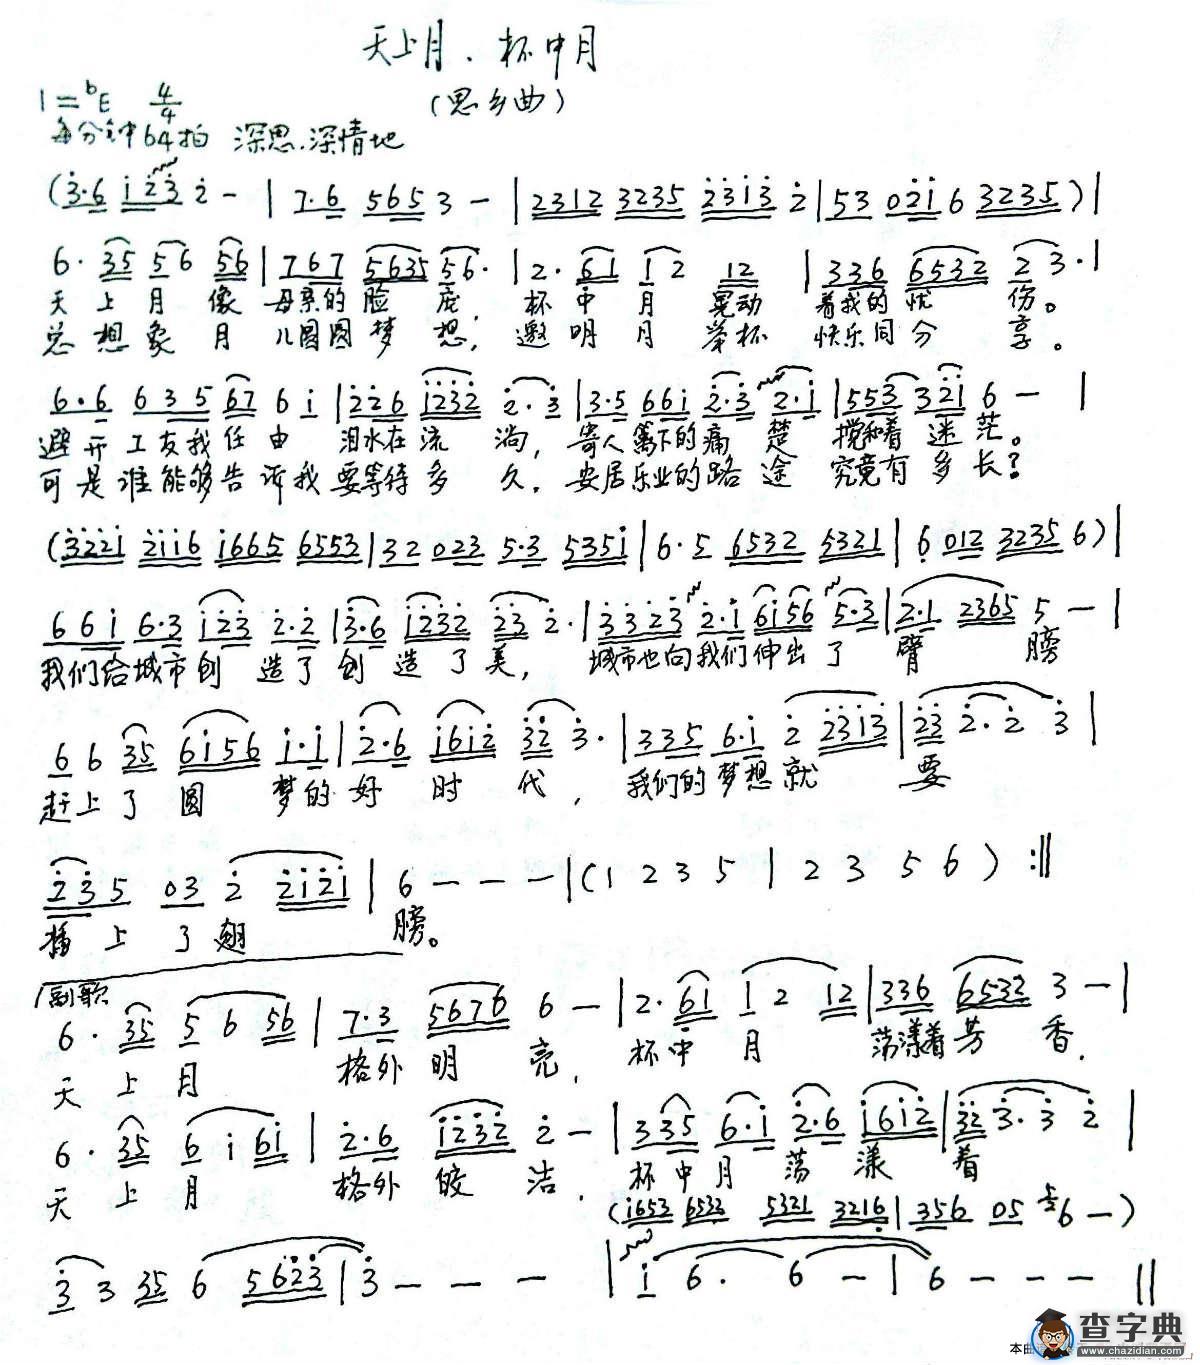 天上月．杯中月
(思乡曲)
1=bE 4/4
每分钟64拍 深思.深情地
(3·6 123 2 - | 7·6 565 3 - | 2312 3235 2313 2 | 53 021 6 3235) |
6· 35 56 56 | 767 5635 56· | 2· 61 12 12 | 336 6532 23· |
天上月像母亲的脸庞, 杯中月晃动着我的忧伤。
总想象月儿圆圆梦想, 邀明月举杯快乐同分享。
6·6 635 67 6 1 | 226 1232 2·3 | 3·5 661 2·3 2·1 | 553 321 6 - |
避开工友我任由泪水在流淌, 寄人篱下的痛楚搅和着迷茫。
可是谁能够告诉我要等待多久, 安居乐业的路途究竟有多长?
(3221 2116 1665 6553 | 32 023 5·3 5351 | 6·5 6532 5321 | 6 012 3235 6) |
661 6·3 123 2·2 | 3·6 1232 23 2· | 3323 2·1 6156 5·3 | 2·1 2365 5 - |
我们给城市创造了创造了美, 城市也向我们伸出了臂膀
6 6 35 6156 1·1 | 2·6 1612 32 3· | 335 6·1 2 2313 | 23 2·2 3 |
赶上了圆梦的好时代, 我们的梦想就要
235 03 2 2121 | 6 - - - | (1 2 3 5 | 2 3 5 6) :||
插上了翅膀。
副歌
6· 35 5 6 56 | 7·3 5676 6 - | 2· 61 1 2 12 | 336 6532 3 - |
天上月格外明亮, 杯中月荡漾着芳香,
6· 35 6 1 61 | 2·6 1232 2 - | 335 6·1 2·6 1612 | 32 3·3 2 |
天上月格外皎洁, 杯中月荡漾着
(1653 6533 5321 3216 | 356 05 56 -)
3 3 35 6 5623 | 3 - - - | 1 6· 6 - | 6 - - - ||
查字典
www.chazidian.com
本曲